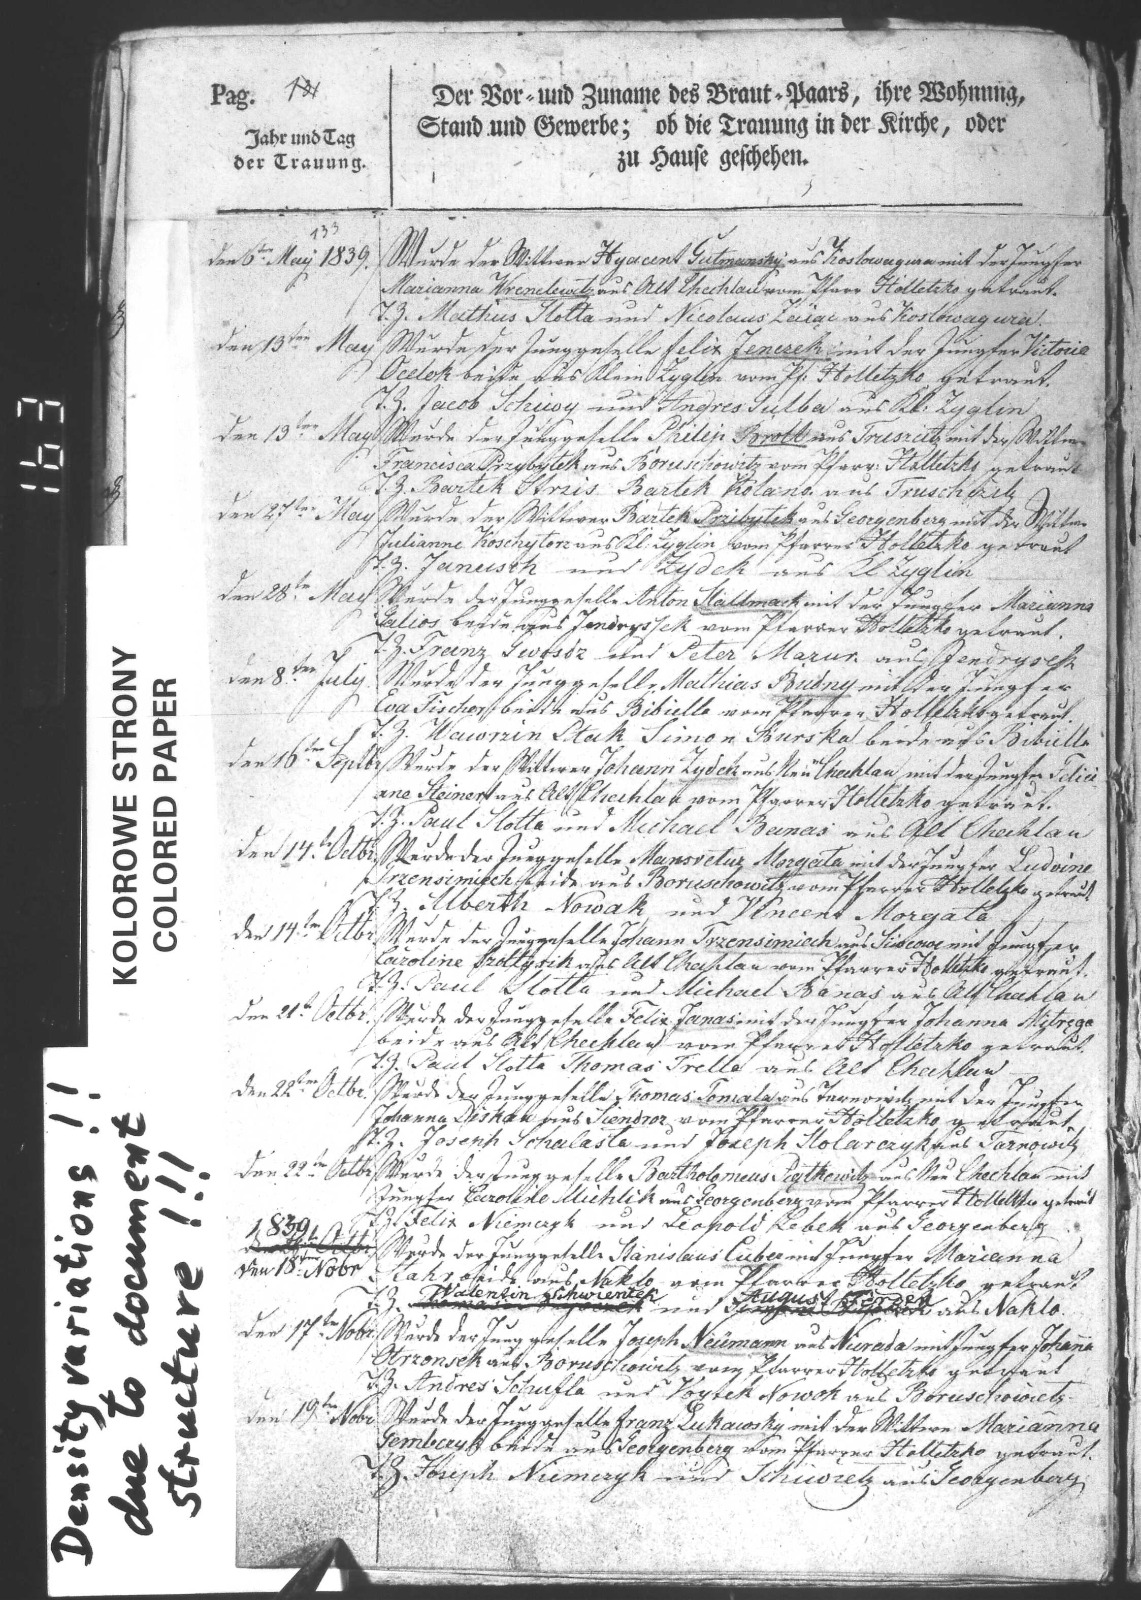 Pag. 181
Der Vor- und Zuname des Braut-Paars, ihre Wohnung,
Stand und Gewerbe; ob die Trauung in der Kirche, oder
zu Hause geschehen.
Jahr und Tag
der Trauung.
133
den 6ten May 1839. Wurde der Wittwer Hyacent Gutmansky aus Koslowagura mit der Jungfer
Marianna aus Alt Chechlau vom Pfarr Holletzko getraut.
T. Z. Mathus Slotta und Nicolaus Zaiąc aus Koslowagura.
den 13ten May Wurde der Junggeselle Felix Jenczek mit der Jungfer Victorie
Ocelok beide aus Klein Zyglin vom Pf: Holletzko getraut.
T. Z. Jacob Schiwy und Andres Gulba aus Kl: Zyglin
den 13ten May Wurde der Junggeselle Philip Broll aus Truszcitz mit der Wittwe
Francisca Przybytek aus Boruschowitz vom Pfarr: Holletzko getraut
T. Z. Bartek Strzis Bartek Kolano aus Truschzitz
den 27ten May Wurde der Wittwer Bartek Przibytek aus Georgenberg mit der Wittwe
Julianne Koschytorz aus Kl. Zyglin vom Pfarrer Holletzko getraut
T. Z. Janusch und Zydek aus Kl Zyglin
den 28ten May Wurde der Junggeselle Anton Stallmach mit der Jungfer Marianna
Galios beide aus Jendryssek vom Pfarrer Holletzko getraut.
T. Z. Franz Gwosdz und Peter Mazur aus Jendrysek
den 8ten July Wurde der Junggeselle Mathias Budny mit der Jungfer
Eva Fischer beide aus Bibiella vom Pfarrer Holletzko getraut.
T. Z. Wawrzin Ptak Simon Burska beide aus Bibiella
den 16ten Septbr Wurde der Wittwer Johann Zydek aus Neu Chechlau mit der Jungfer Felici
ane Steinert aus Alt Chechlau vom Pfarrer Holletzko getraut.
T. Z. Paul Slotta und Michael Banas aus Alt Chechlau
den 14t Octbr. Wurde der Junggeselle Mansvetus Morgala mit der Jungfer Ludvine
Trzensimiech beide aus Boruschowitz vom Pfarrer Holletzko getraut
T. Z. Alberth Nowak und Vincent Morgala
den 14ten Octbr Wurde der Junggeselle Johann Trzensimiech aus mit Jungfer
Caroline Szoltysik aus Alt Chechlau vom Pfarrer Holletzko getraut.
T. Z. Paul Slotta und Michael Banas aus Alt Chechlau
den 21t Octbr. Wurde der Junggeselle Felix Janas mit der Jungfer Johanna Mitręga
beide aus Alt Chechlau vom Pfarrer Holletzko getraut.
T. Z. Paul Slotta Thomas Trella aus Alt Chechlau
den 22ten Octbr. Wurde der Junggeselle Thomas Tomala aus Tarnowitz mit der Jungfer
Johanna aus vom Pfarrer Holletzko getraut
T. Z. Joseph Schalasta und Joseph Stolarczyk aus Tarnowitz
den 22ten Octbr Wurde der Junggeselle Bartholomeus aus Neu Chechlau mit
Jungfer Caroline Michlik aus Georgenberg vom Pfarrer Holletzko getraut
T. Z. Felix Niemczyk und Leopold Lebek aus Georgenberg
1839
den 18ten Nobr Wurde der Junggeselle Stanislaus Cuber mit Jungfer Marianna
beide aus Naklo vom Pfarrer Holletzko getraut
T. Z. Valentin Schwientek und August aus Naklo
den 17ten Nobr. Wurde der Junggeselle Joseph Neümann aus mit Jungfer Johanna
aus Boruschowitz vom Pfarrer Holletzko getraut
T. Z. Andres Schufla und Voytek Nowok aus Boruschowietz
den 19ten Nobr Wurde der Junggeselle Franz Lukawsky mit der Wittwe Marianna
beide aus Georgenberg vom Pfarrer Holletzko getraut.
T. Z. Joseph Niemczyk und Schiwietz aus Georgenberg
163
KOLOROWE STRONY
COLORED PAPER
Density variations !!
due to document
structure !!!